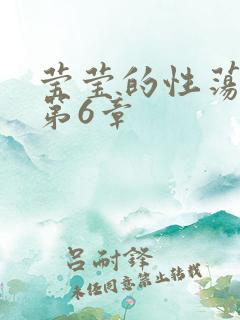 莹莹的性荡
第6章
吕耐锋
未经同意禁止转载